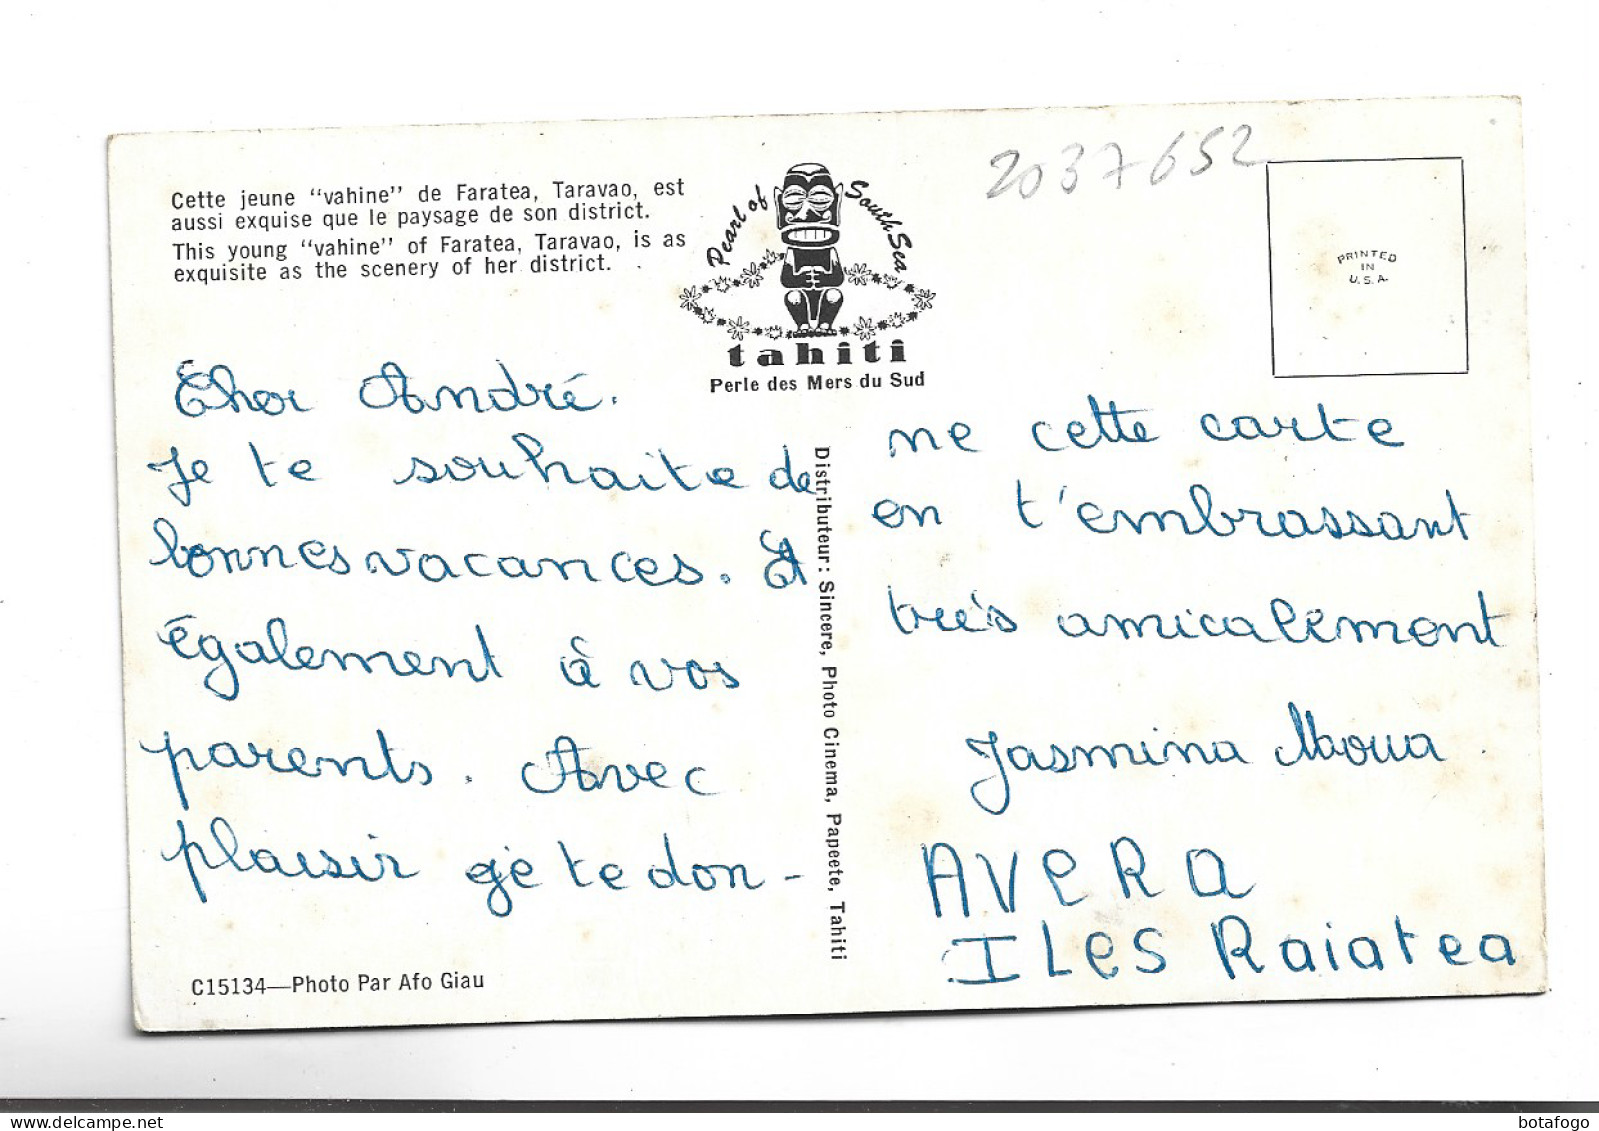 Cette jeune "vahine" de Faratea, Taravao, est
aussi exquise que le paysage de son district.
This young "vahine" of Faratea, Taravao, is as
exquisite as the scenery of her district.
Pearl of South Sea
tahiti
Perle des Mers du Sud
2037652
PRINTED
IN
U.S.A.
Cher André.
Je te souhaite de
bonnes vacances. Et
également à vos
parents. Avec
plaisir je te don-
Distributeur: Sincere, Photo Cinema, Papeete, Tahiti
ne cette carte
en t'embrassant
très amicalement
Jasmina Moua
AVERA
ILES Raiatea
C15134—Photo Par Afo Giau
botafogo